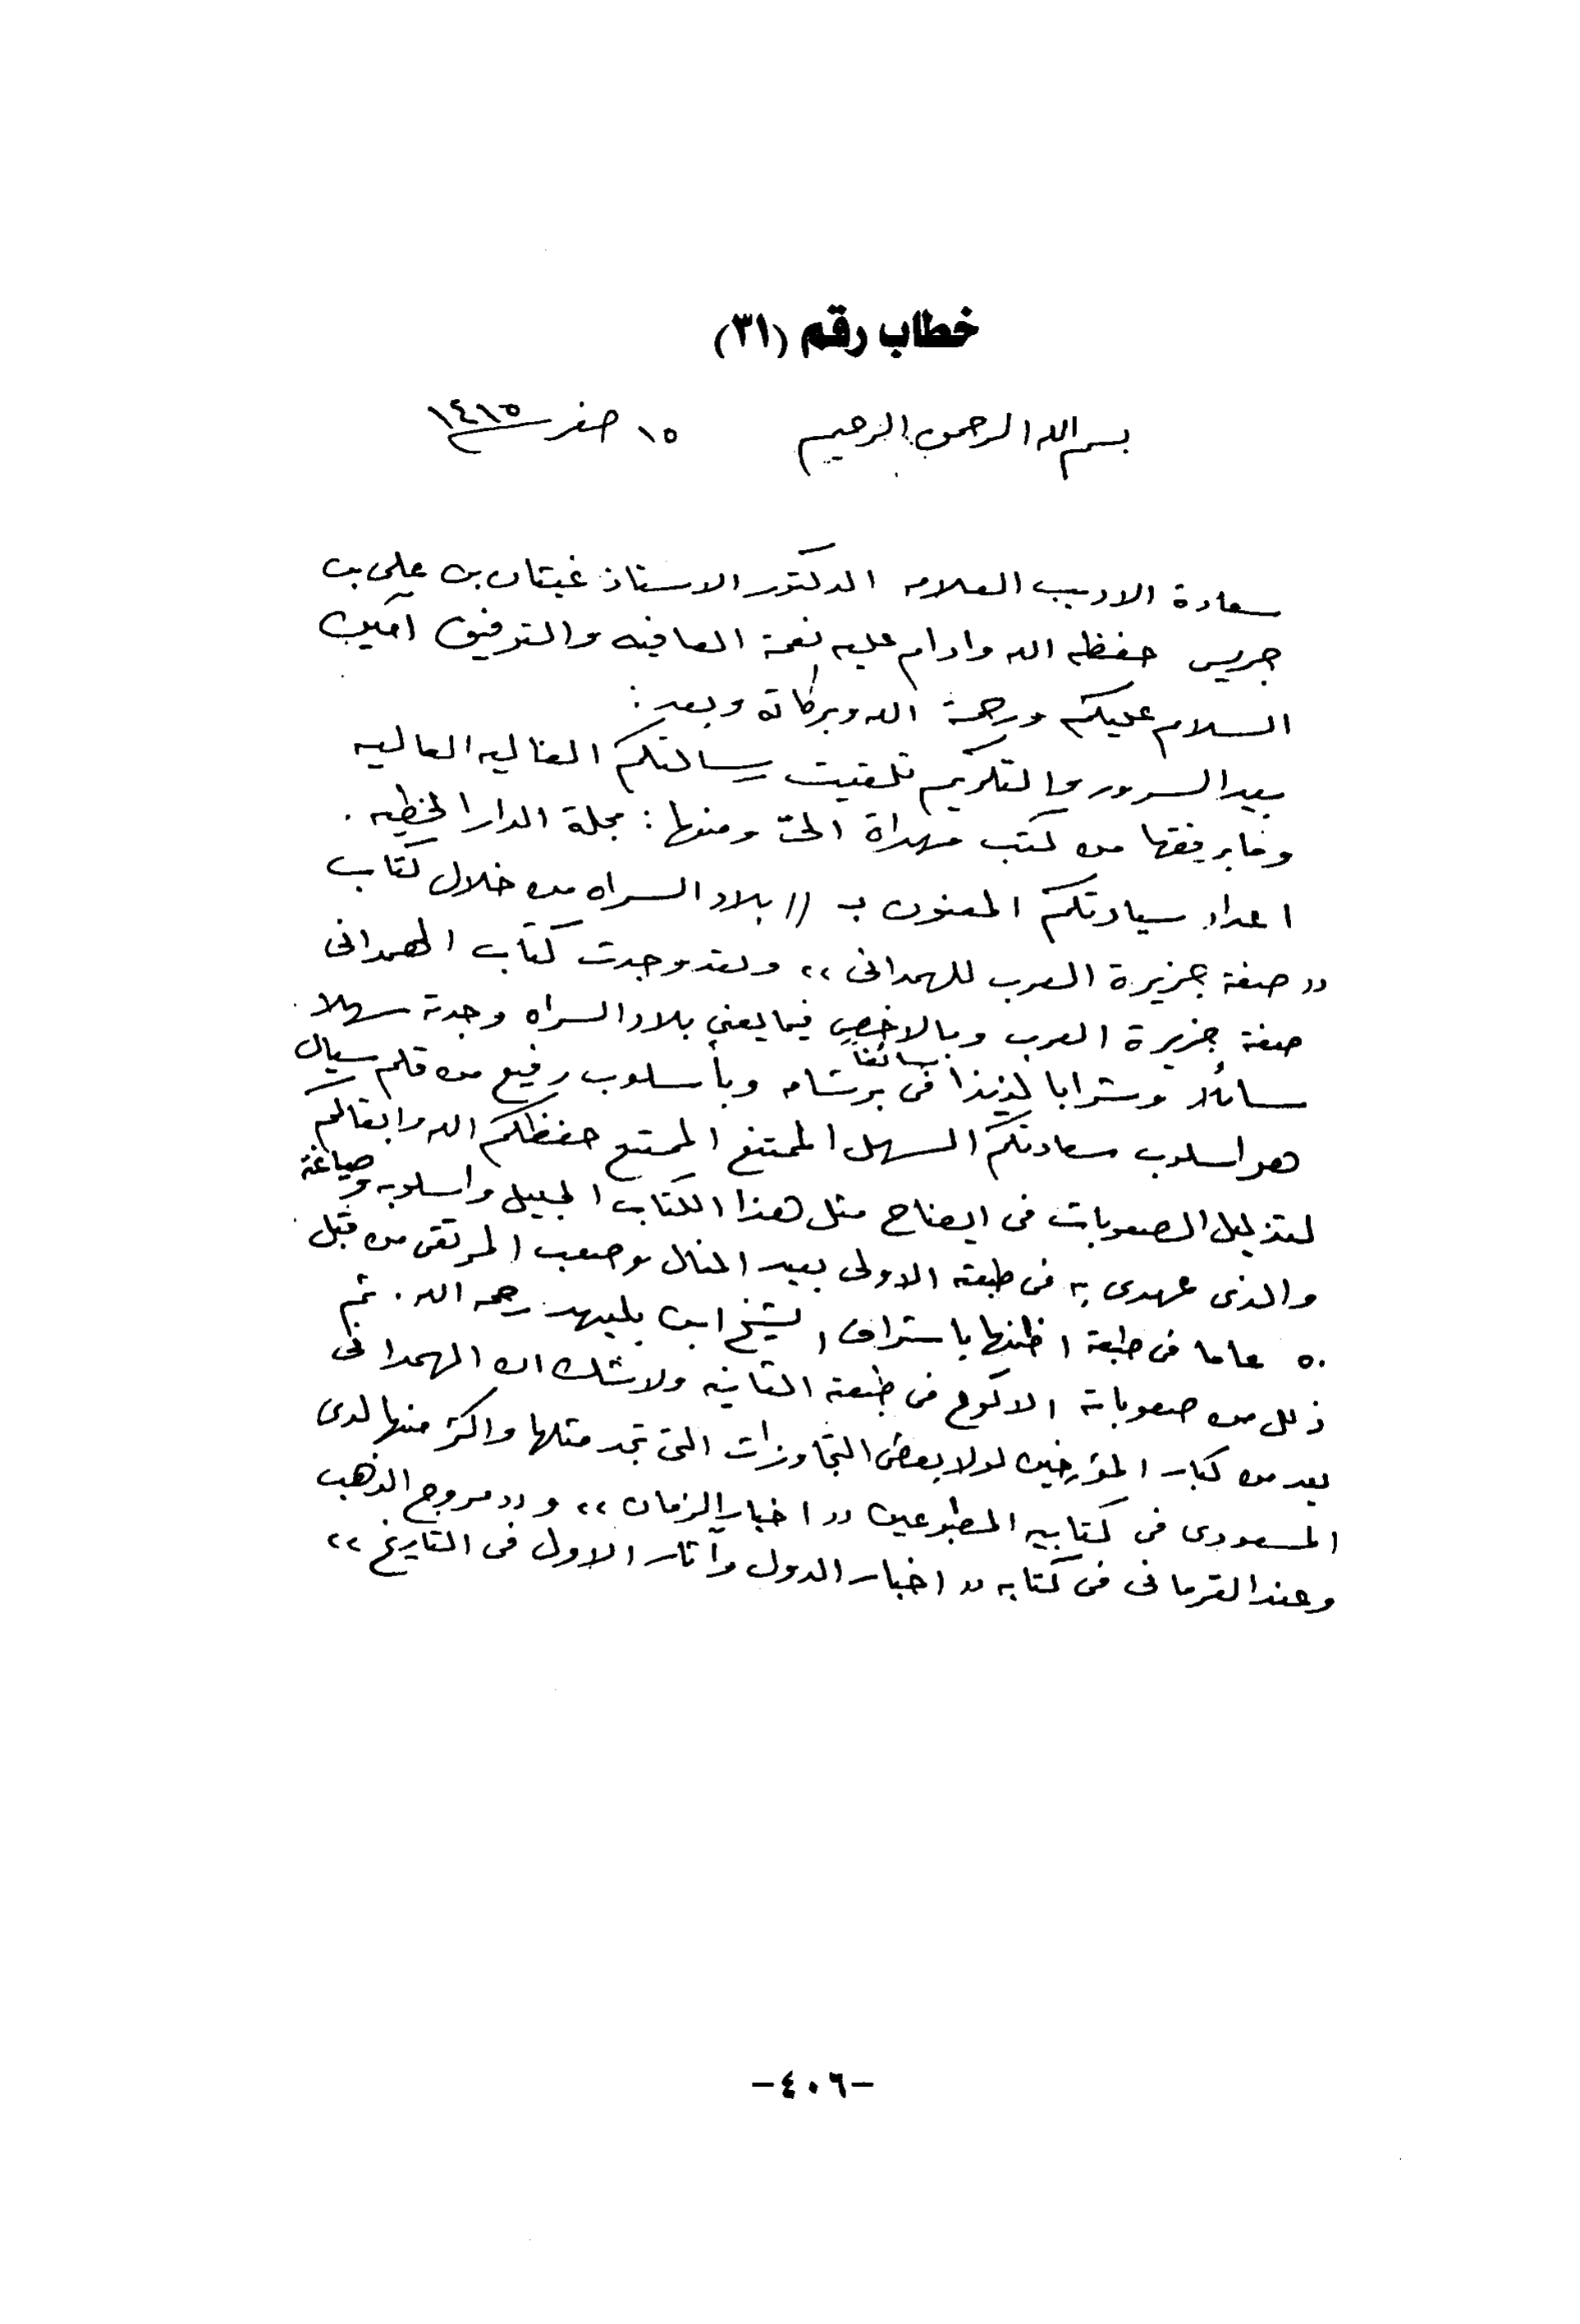 خطاب رقم (٣١)
بسم الله الرحمن الرحيم ١٥ صفر ١٤١٥
سعادة الاديب العلامه الدكتور الاستاذ غيثان بن علي بن
جريس حفظه الله وادام عليه نعمة العافيه والتوفيق آمين
السلام عليكم ورحمة الله وبركاته وبعد :
بيد السرور والتكريم تلقيت رسالتكم الغاليه العاليه
وما برفقها من كتب مهداة الىّ ومنها : مجلة الدار الخطيه .
اعداد سيادتكم المعنون بـ (( بلاد السراه من خلال كتاب
(( صفة جزيرة العرب للهمدانى ،، ولقد وجدت كتاب الهمدانى
صفة جزيرة العرب وبالاخص فيما يعني بلاد السراه وجدته سهلا
سائلا وشرابا لذيذا سائغا فى برشامه وبأسلوب رفيع من قلم سيال
هو اسلوب سعادتكم السهل الممتنع الممتع حفظكم الله وابقاكم
لتذليل الصعوبات فى ايضاح مثل هذا الكتاب الجليل واسلوبه وصياغة
والذى عهدى به فى طبعته الاولى بعيد المنال وصعب المرتقى من قبل
٥٠ عاما فى طبعة اظنها باشراف الشيخ ابن بليهد رحمه الله . ثم
ذلل من صعوباته الاكوع فى طبعته الثانيه ولاشك ان الهمدانى
يعد من كبار المؤرخين لولا بعض التجاوزات التى تجد مثلها واكثر منها لدى
المسعودى فى كتابيه المطبوعين (( اخبار الزمان ،، و (( مروج الذهب
وعند القرمانى فى كتابه (( اخبار الدول وآثار الاول فى التاريخ ،،
-٤٠٦-